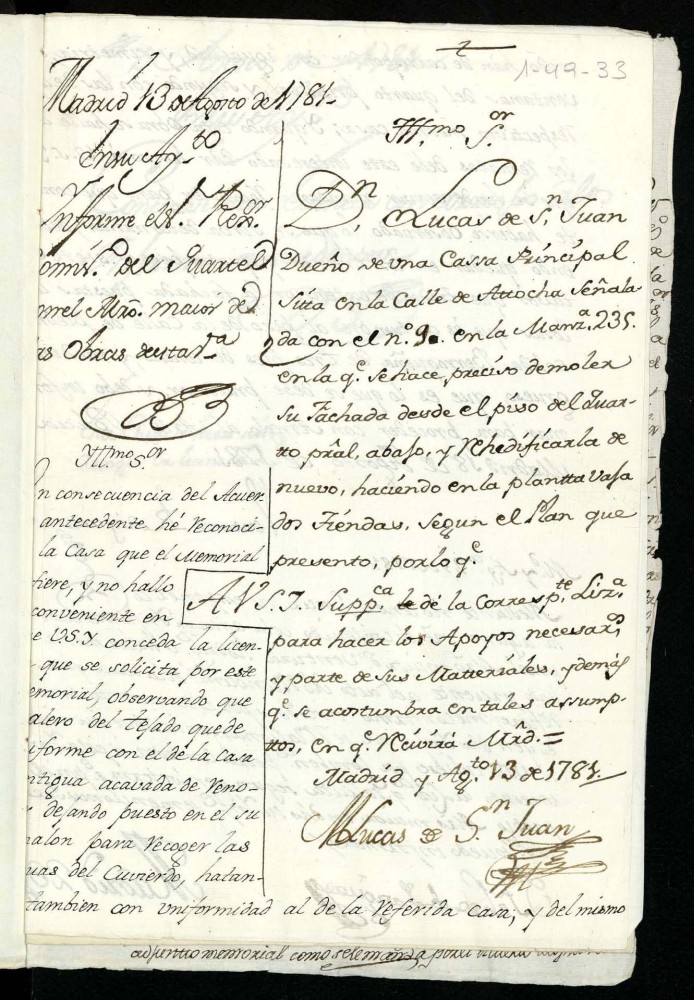 1-49-33
Madrid 13 de Agosto de 1781-
En su Ay.to
Informe el S.r Rex.or
Comis.o del Quartel
con el Mro. maior de
las Obras de esta V.a
Yll.mo S.or
En consecuencia del Acuer
antecedente hé reconoci-
la Casa que el Memorial
fiere, y no hallo
conveniente en
e V.S.Y. conceda la licen-
que se solicita por este
emorial, observando que
alero del tejado quede
iforme con el de la casa
ntigua acavada de reno-
dejando puesto en el su
nalon para recoger las
uas del Cuvierto, hatan-
tambien con uniformidad al de la referida casa; y del mismo
Yll.mo S.or
D.n Lucas de S.n Juan
Dueño de una Cassa Principal
sita en la Calle de Attocha Señala-
da con el n.o 9. en la Manz.a 235.
en la q.e se hace preciso demoler
su Fachada desde el piso del Quar-
tto pral, abajo, y rehedificarla de
nuevo, haciendo en la plantta vaja
dos Tiendas, segun el Plan que
presento, por lo q.e
A V.S.I. Supp.ca le dé la Corresp.te Liz.a
para hacer los Apoyos necesar.os
y parte de sus Matteriales, y demás
q.e se acostumbra en tales assump-
ttos, en q.e recivirá Mrd.=
Madrid y Ag.to 13 de 1781.
Lucas de S.n Juan
memorial como se le manda por el